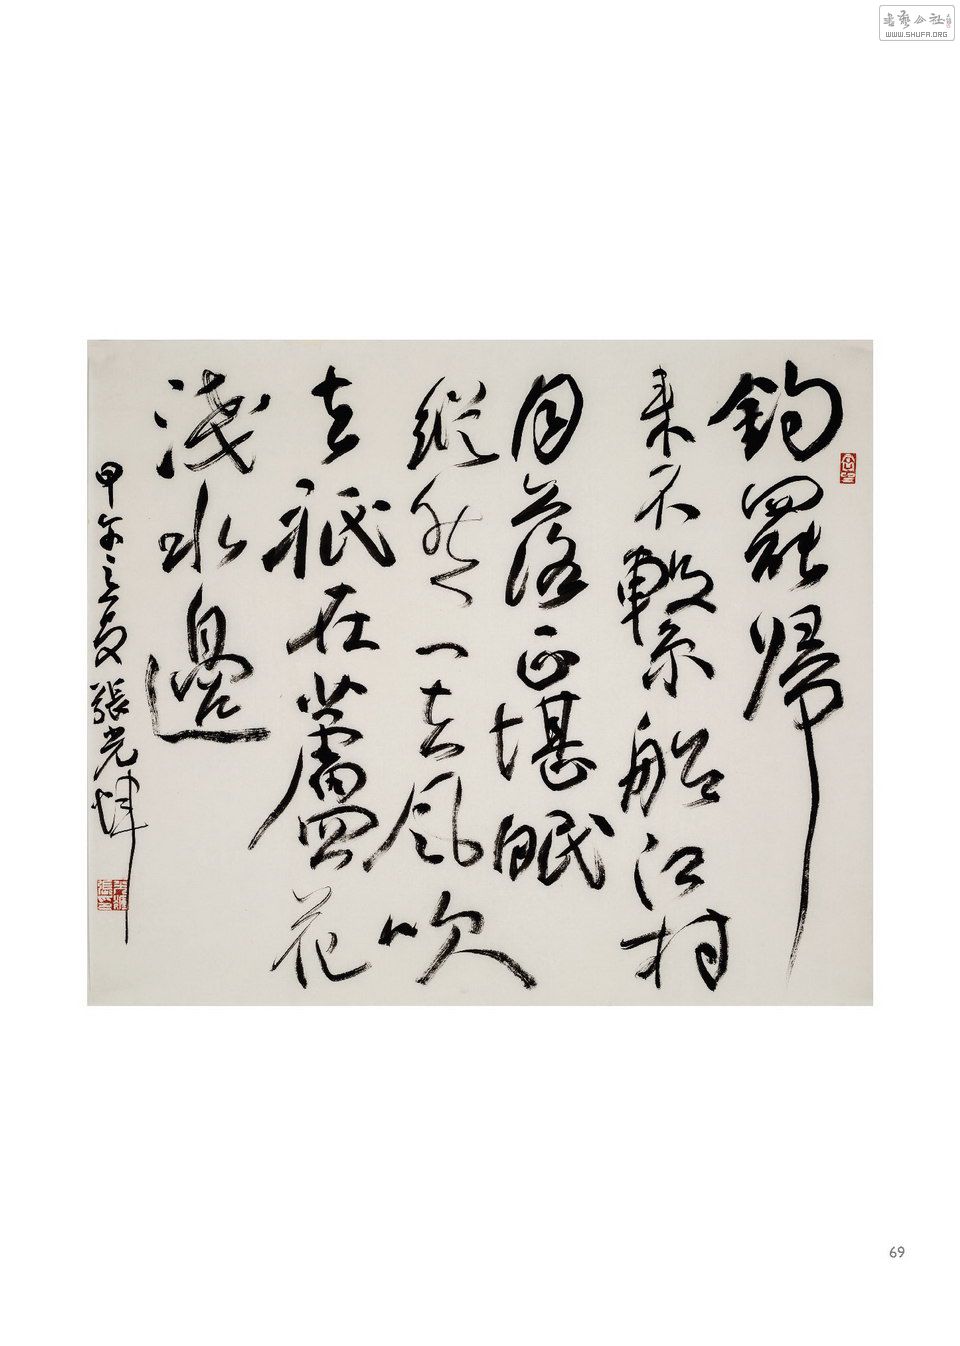 書藝公社
WWW.SHUFA.ORG
釣罷歸
來不繫船江村
月落正堪眠
縱然一去風吹
去祇在蘆花
淺水邊
甲午之夏張光煒
69